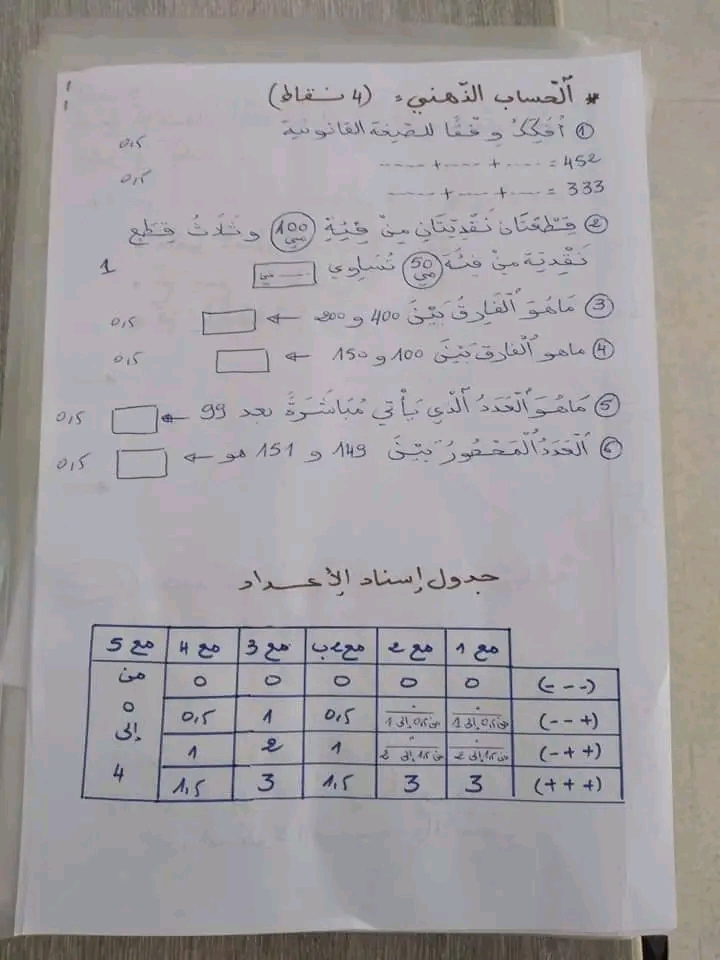 * ٱلْحساب الذّهني: (4 نقاط)
① أُفَكِّكُ وِفْقًا للصّيغة القانونية
452 = ..... + ..... + ..... 0,5
333 = ..... + ..... + ..... 0,5
② قِطْعَتَانِ نَقْدِيّتَانِ مِنْ فِئِةِ 100 مي وثَلَاثُ قِطَعٍ
نَقْدِيّة مِنْ فئَة 50 مي تُسَاوِي ..... مي 1
③ مَاهُوَ ٱلْفَارِقُ بَيْنَ 400 و 200 ← 0,5
④ ماهو ٱلْفارق بَيْنَ 100 و 150 ← 0,5
⑤ مَاهُوَ ٱلْعَدَدُ ٱلّذِي يَأْتي مُبَاشَرَةً بعد 99 ← 0,5
⑥ ٱلْعَدَدُ ٱلْمَحْصُورُ بَيْنَ 149 و 151 هو ← 0,5
جدول إسناد الأعداد
مع 1 مع 2 مع 2ب مع 3 مع 4 مع 5
(---) 0 0 0 0 0 من
(--+) من 0,5 إلى 1 من 0,5 إلى 1 0,5 1 0,5 0
(-++) من 1,5 إلى 2 من 1,5 إلى 2 1 2 1 إلى
(+++) 3 3 1,5 3 1,5 4